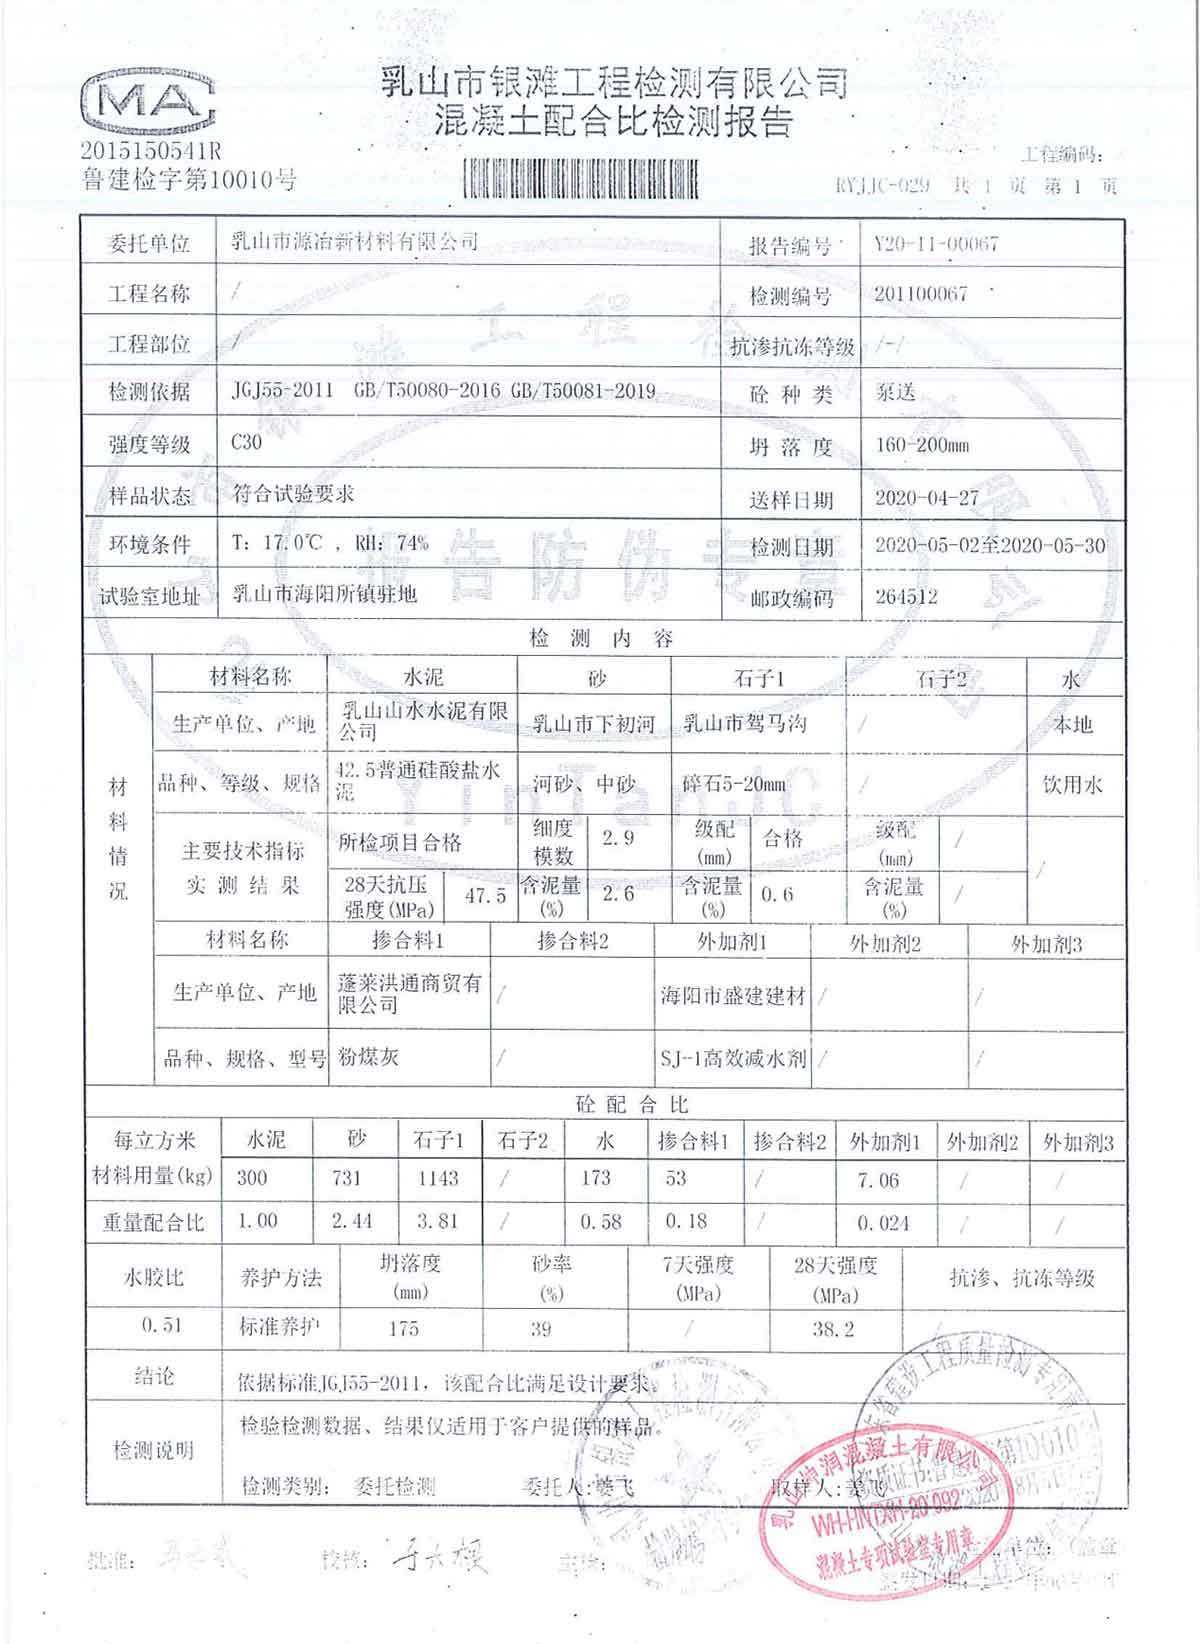 乳山市银滩工程检测有限公司
混凝土配合比检测报告
CMA
2015150541R
鲁建检字第10010号
工程编码:
RYJJC-029 共 1 页 第 1 页
委托单位 乳山市源冶新材料有限公司 报告编号 Y20-11-00067
工程名称 / 检测编号 201100067
工程部位 / 抗渗抗冻等级 /-/
检测依据 JGJ55-2011 GB/T50080-2016 GB/T50081-2019 砼 种 类 泵送
强度等级 C30 坍 落 度 160-200mm
样品状态 符合试验要求 送样日期 2020-04-27
环境条件 T: 17.0℃ , RH: 74% 检测日期 2020-05-02至2020-05-30
试验室地址 乳山市海阳所镇驻地 邮政编码 264512
报告防伪专章
检 测 内 容
材料情况
材料名称 水泥 砂 石子1 石子2 水
生产单位、产地 乳山山水水泥有限公司 乳山市下初河 乳山市驾马沟 / 本地
品种、等级、规格 42.5普通硅酸盐水泥 河砂、中砂 碎石5-20mm / 饮用水
YinTanJC
主要技术指标 实 测 结 果 所检项目合格 细度模数 2.9 级配(mm) 合格 级配(mm) / /
28天抗压强度(MPa) 47.5 含泥量(%) 2.6 含泥量(%) 0.6 含泥量(%) /
材料名称 掺合料1 掺合料2 外加剂1 外加剂2 外加剂3
生产单位、产地 蓬莱洪通商贸有限公司 / 海阳市盛建建材 / /
品种、规格、型号 粉煤灰 / SJ-1高效减水剂 / /
砼 配 合 比
每立方米 水泥 砂 石子1 石子2 水 掺合料1 掺合料2 外加剂1 外加剂2 外加剂3
材料用量(kg) 300 731 1143 / 173 53 / 7.06 / /
重量配合比 1.00 2.44 3.81 / 0.58 0.18 / 0.024 / /
水胶比 养护方法 坍落度(mm) 砂率(%) 7天强度(MPa) 28天强度(MPa) 抗渗、抗冻等级
0.51 标准养护 175 39 / 38.2 /
结论 依据标准JGJ55-2011，该配合比满足设计要求。
检测说明 检验检测数据、结果仅适用于客户提供的样品。
检测类别: 委托检测 委托人:姜飞 取样人:姜飞
批准: 校核:
WH-HNTXH-20-092
混凝土专项试验室专用章